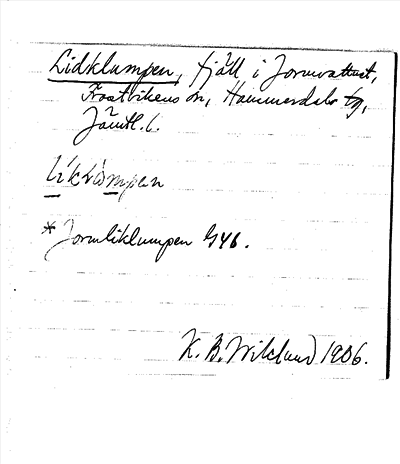 Lidklumpen, fjäll i Jormvattnet,
Frostvikens sn, Hammerdals tg,
Jämtl. l.
* Jormliklumpen
K. B. Wiklund 1906.